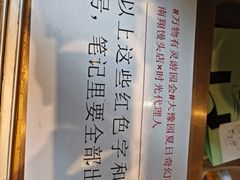 #万物有灵游园会#大豫园夏日奇幻
南翔馒头店×时光代理人
以上这些红色字和
号，笔记里要全部出